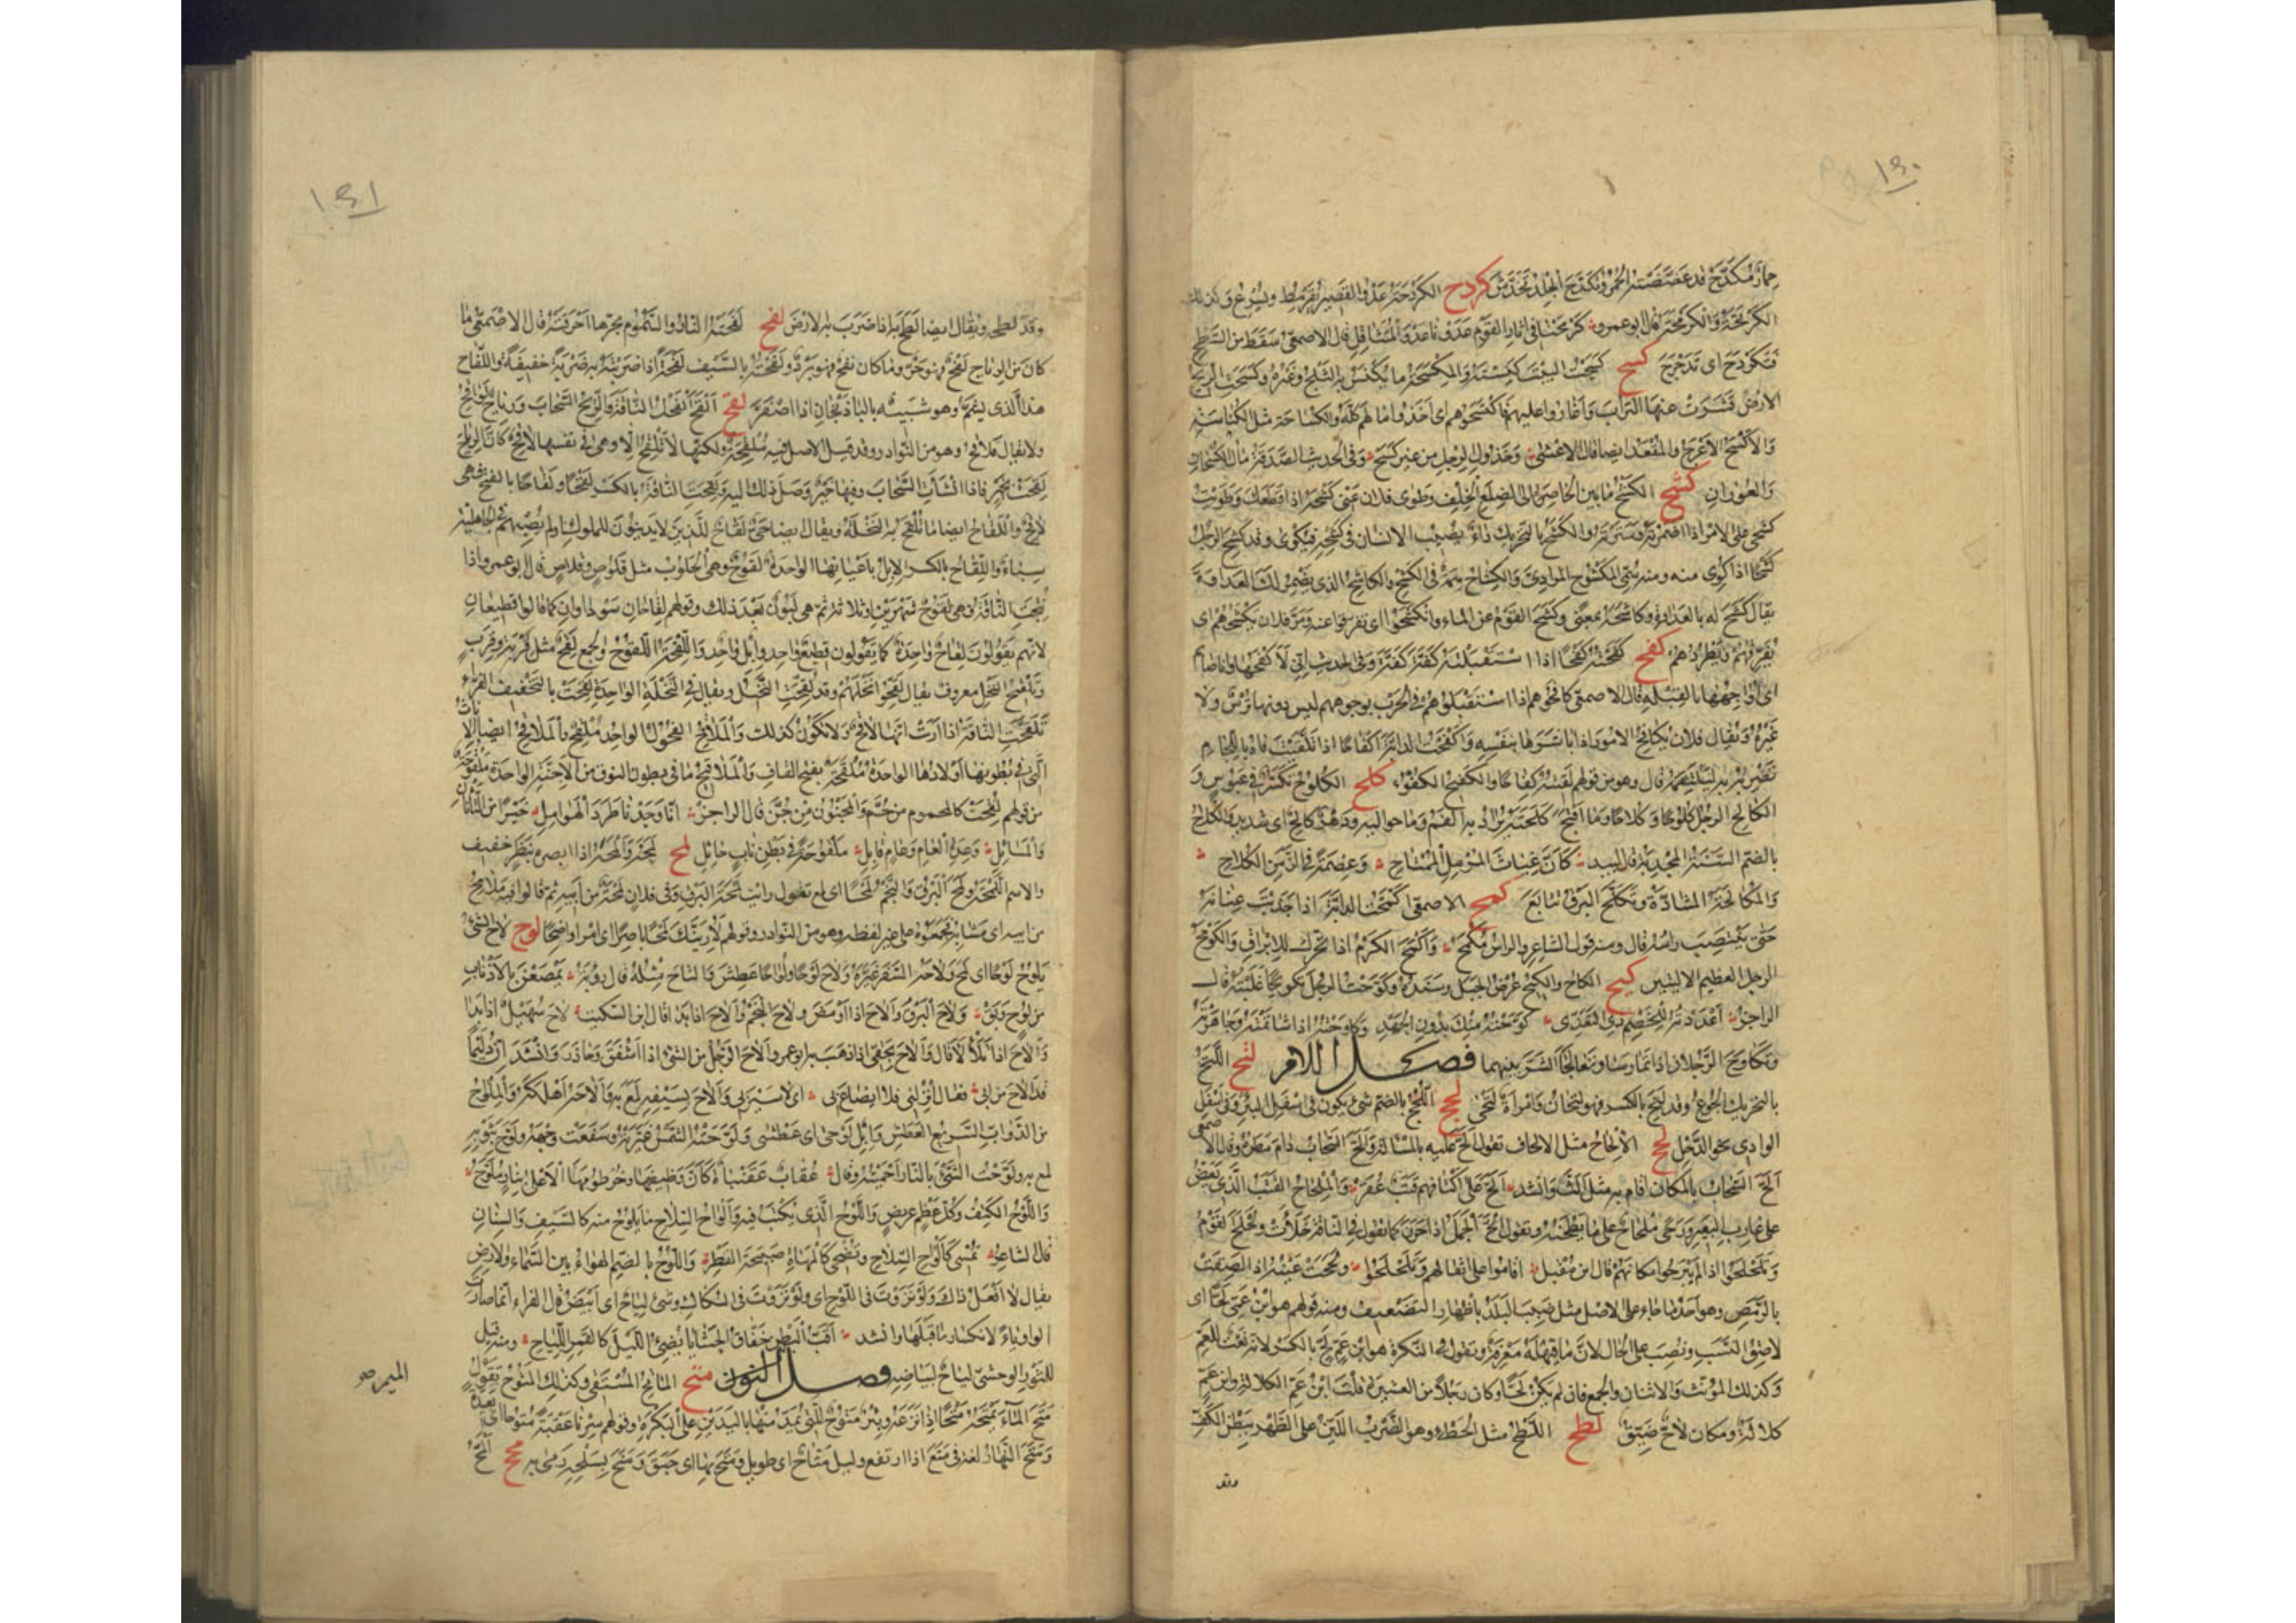 ١٤٠
حمار مكدح قد عضضته الحمر وتكدح الجلد تخدش كردح الكردحة عدو القصير يقرمط ويسرع وكذلك
الكرتحة والكرمحة قال ابو عمرو كرمحنا في اثار القوم عدونا عدو المتثاقل قال الاصمعي سقط من السطح
فتكردح اى تدحرج كسح كسحت البيت كنسته والمكسحة ما يكنس به الثلج وغيره وكسحت الريح
الارض قشرت عنها التراب واغاروا عليهم فاكتسحوهم اى اخذوا مالهم كله والكساحة مثل الكناسة
والاكسح الاعرج والمقعد ايضا قال الاعشى وخذول الرجل من غير كسح وفى الحديث الصدقة مال الكسحان
والعوران كشح الكشح ما بين الخاصرة الى الضلع الخلف وطوى فلان عنى كشحه اذا قطعك وطويت
كشحى على الامر اذا اضمرته وسترته والكشح بالتحريك داء يصيب الانسان فى كشحه فيكوى وقد كشح الرجل
كشحا اذا كوى منه ومنه سمى المكشوح المرادى والكشاح سمة فى الكشح والكاشح الذى يضمر لك العداوة
يقال كشح له بالعداوة وكاشحه بمعنى وكشح القوم عن الماء وانكشحوا اى تفرقوا عنه ومر فلان يكشحهم اى
يفرقهم ويطردهم كفح كفحته كفحا اذا استقبلته كفة كفة وفى الحديث انى لاكفحها وانا صائم
اى اواجهها بالقبلة قال الاصمعى كافحوهم اذا استقبلوهم فى الحرب بوجوههم ليس دونها ترس ولا
غيره ويقال فلان يكافح الامور اذا باشرها بنفسه واكفحت الدابة اكفاحا اذا تلقيت فاه باللجام
تضربه به ليلتقمه قال وهو من قولهم لقيته كفاحا والكفيح الكفو كلح الكلوح تكشر فى عبوس و
الكالح الرجل كلوحا وكلاحا وما اقبح كلحته يراد به الفم وما حواليه ودهر كالح اى شديد والكلاح
بالضم السنة المجدبة قال لبيد كان غياث المرمل الممتاح وعصمة فى الزمن الكلاح
والمكالحة المشادة وتكلح البرق تتابع كمح الاصمعى اكمحت الدابة اذا جذبت عنانه
حتى ينتصب راسه قال ومنه قول الشاعر والراس مكمح واكمح الكرم اذا تحرك للايراق والكومح
الرجل العظيم الاليتين كيح الكاح والكيح عرض الجبل وسنده وكوحت الرجل تكويحا غلبته قال
الراجز اعددته للخصم ذى التعدى كوحته منك بدون الجهد وكاوحته اذا شاتمته وجاهرته
وتكاوح الرجلان اذا تمارسا وتعالجا الشر بينهما فصل اللام لتح اللتح
بالتحريك الجوع وقد لتح بالكسر فهو لتحان وامراة لتحى لجح اللجح بالضم شىء يكون فى اسفل البئر وفى اسفل
الوادى نحو الدحل لحح الالحاح مثل الالحاف تقول الح عليه بالمسالة والح السحاب دام مطره وقال الاصمعى
الح السحاب بالمكان اقام به مثل الث وانشد الح على اكتافهم قتب عقر والملحاح القتب الذى يعض
على غارب البعير ورحى ملحاح على ما يطحنه وتقول الح الجمل اذا حرن كما تقول فى الناقة خلات وتلحلح القوم
وتلحلحوا اذا لم يبرحوا مكانهم قال ابن مقبل اقاموا على اثقالهم وتلحلحوا ولححت عينه اذا لصقت
بالرمص وهو احد ما جاء على الاصل مثل ضبب البلد باظهار التضعيف ومنه قولهم هو ابن عمى لحا اى
لاصق النسب ونصب على الحال لان ما قبله معرفة وتقول فى النكرة هو ابن عم لح بالكسر لانه نعت للعم
وكذلك المؤنث والاثنان والجمع فان لم يكن لحا وكان رجلا من العشيرة قلت ابن عم الكلالة وابن عم
كلالة ومكان لاح ضيق لطح اللطح مثل الحطء وهو الضرب اللين على الظهر ببطن الكف
وقد
١٤١
وقد لطحه ويقال ايضا لطح به اذا ضرب به الارض لفح لفحته النار والسموم بحرها احرقته قال الاصمعى ما
كان من الرياح لفح فهو حر وما كان نفح فهو برد ولفحته بالسيف لفحة اذا ضربته به ضربة خفيفة واللفاح
هذا الذى يشم وهو شبيه بالباذنجان اذا اصفر لقح القح الفحل الناقة والريح السحاب ورياح لواقح
ولا يقال ملاقح وهو من النوادر وقد قيل الاصل فيه ملقحة ولكنها لا تلقح الا وهى فى نفسها لاقح كان الرياح
لقحت بخير فاذا انشات السحاب وفيها خير وصل ذلك اليه ولقحت الناقة بالكسر لقحا ولقاحا بالفتح فهى
لاقح واللقاح ايضا ما تلقح به النخلة ويقال ايضا حى لقاح للذين لا يدينون للملوك او لم يصبهم فى الجاهلية
سباء واللقاح بالكسر الابل باعيانها الواحدة لقوح وهى الحلوب مثل قلوص وقلاص قال ابو عمرو اذا
نتجت الناقة فهى لقوح شهرين او ثلاثة ثم هى لبون بعد ذلك وقولهم لقاحان سوداوان كما قالوا قطيعان
لانهم يقولون لقاح واحدة كما يقولون قطيع واحد وابل واحد واللقحة اللقوح والجمع لقح مثل قربة وقرب
وتلقيح النخل معروف يقال لقحوا نخلهم وقد لقحت النخل ويقال فى النخلة الواحدة لقحت بالتخفيف الفراء
تلقحت الناقة اذا ارت انها لاقح ولا تكون كذلك والملاقح الفحول الواحد ملقح والملاقح ايضا الاناث
التى فى بطونها اولادها الواحدة ملقحة بفتح القاف والملاقيح ما فى بطون النوق من الاجنة الواحدة ملقوحة
من قولهم لقحت كالمحموم من حم والمجنون من جن قال الراجز انا وجدنا طرد الهوامل خيرا من التانان
والمسائل وعدة العام وعام قابل ملقوحة فى بطن ناب حائل لمح لمحه والمحه اذا ابصره بنظر خفيف
والاسم اللمحة ولمح البرق والنجم لمحا اى لمع تقول رايت لمحة البرق وفى فلان لمحة من ابيه ثم قالوا فيه ملامح
من ابيه اى مشابه فجمعوه على غير لفظه وهو من النوادر وقولهم لارينك لمحا باصرا اى امرا واضحا لوح لاح الشئ
يلوح لوحا اى لمح ولاحه السفر غيره ولاح لوحا ولواحا عطش والتاح مثله قال رؤبة يمصعن بالاذناب
من لوح وبق ولاح البرق والاح اذا اومض ولاح النجم والاح اذا بدا قال ابن السكيت لاح سهيل اذا بدا
والاح اذا تلالا قال والاح بحقى اذا ذهب به ابو عمرو الاح الرجل من الشئ اذا اشفق وحاذر وانشد ان دليما
قد الاح من ابى فقال انزلنى فلا ايضاع بى اى لا سير بى والاح بسيفه لمع به والاحه اهلكه والملواح
من الدواب السريع العطش وابل لوحى اى عطشى ولوحته الشمس غيرته وسفعت وجهه ولوح بثوبه
لمع به ولوحت الشئ بالنار احميته وقال عقاب عقنباة كان وظيفها وخرطومها الاعلى بنار ملوح
واللوح الكتف وكل عظم عريض واللوح الذى يكتب فيه والواح السلاح ما يلوح منه كالسيف والسنان
قال الشاعر تمسى كالواح السلاح وتضحى كالمهاة صبيحة القطر واللوح بالضم الهواء بين السماء والارض
يقال لا افعل ذاك ولو نزوت فى اللوح اى ولو نزوت فى السكاك وشئ لياح اى ابيض قال الفراء انما صارت
الواو ياء لانكسار ما قبلها وانشد اقب البطن خفاق الحشايا يضئ الليل كالقمر اللياح ومنه قيل
للثور الوحشى لياح لبياضه فصل النون متح الماتح المستقى وكذلك المتوح تقول
متح الماء يمتحه متحا اذا نزعه وبئر متوح للتى يمد منها باليدين على البكرة وقولهم سرنا عقبة متوحا اى بعيدة
ومتح النهار لغة فى متع اذا ارتفع وليل متاح اى طويل ومتح بها اى حبق ومتح بسلحه رمى به محح المح
الميم صح